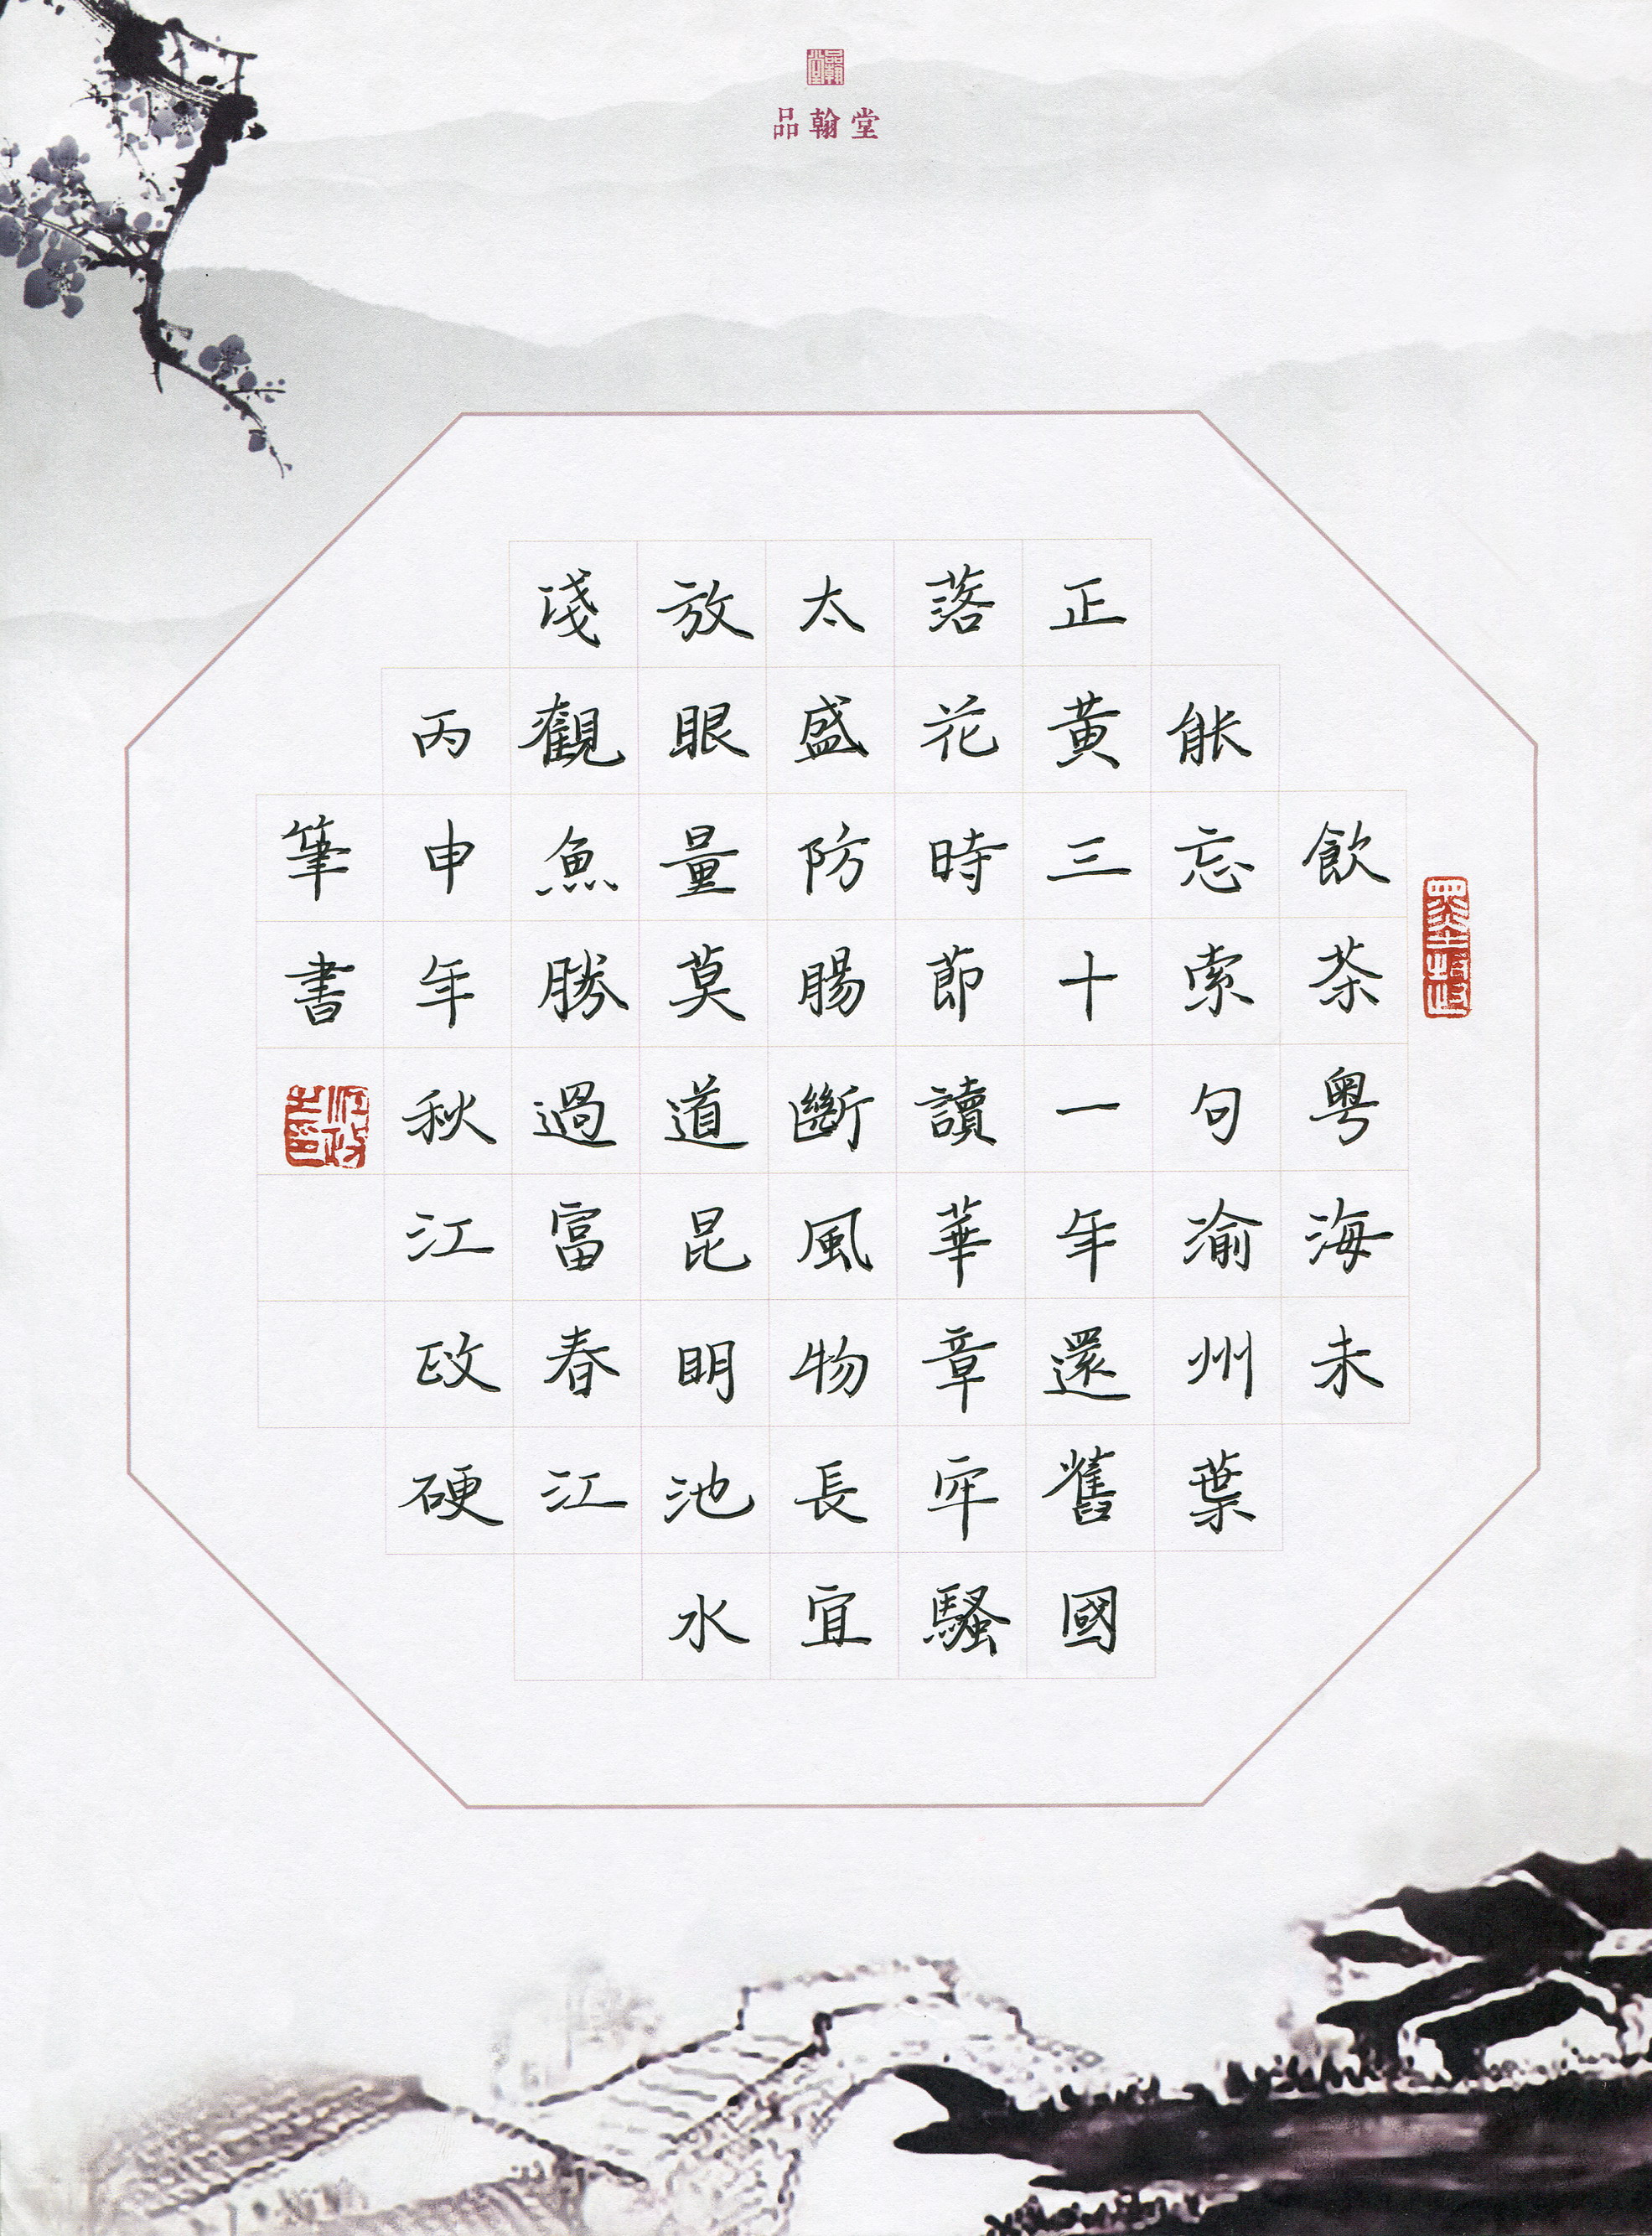 品翰堂
品翰堂
飲茶粤海未
能忘索句渝州葉
正黃三十一年還舊國
落花時節讀華章牢騷
太盛防腸斷風物長宜
放眼量莫道昆明池水
淺觀魚勝過富春江
丙申年秋江政硬
筆書
江政之印